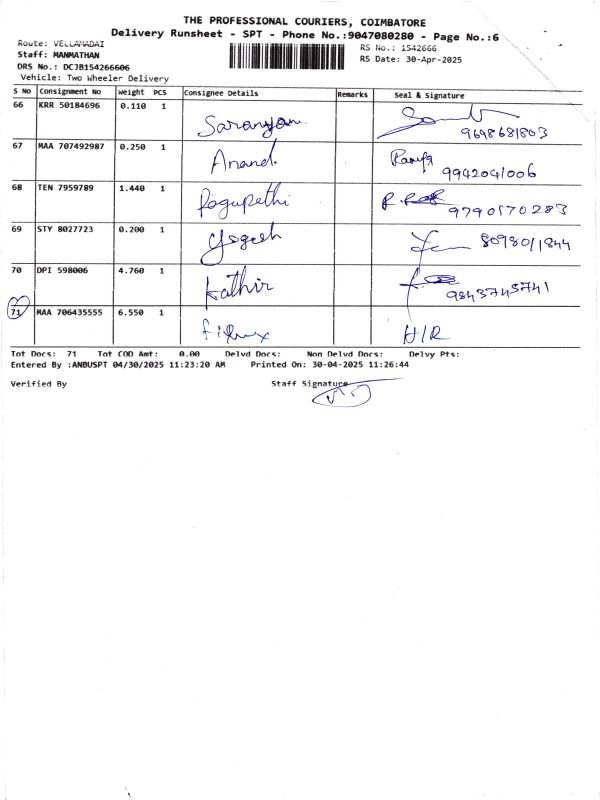 THE PROFESSIONAL COURIERS, COIMBATORE
Delivery Runsheet - SPT - Phone No.:9047080280 - Page No.:6
Route: VELLAMADAI
RS No.: 1542666
Staff: MANMATHAN
RS Date: 30-Apr-2025
DRS No.: DCJB154266606
Vehicle: Two Wheeler Delivery
S No Consignment No Weight PCS Consignee Details Remarks Seal & Signature
66 KRR 50184696 0.110 1 Saranyan 9698681803
67 MAA 707492987 0.250 1 Anand. Ramya 9942041006
68 TEN 7959789 1.440 1 Ragupathi 9790570283
69 STY 8027723 0.200 1 Yogesh 8098011844
70 DPI 598006 4.760 1 Kathir 9843745741
71 MAA 706435555 6.550 1 H/R
Tot Docs: 71 Tot COD Amt: 0.00 Delvd Docs: Non Delvd Docs: Delvy Pts:
Entered By :ANBUSPT 04/30/2025 11:23:20 AM Printed On: 30-04-2025 11:26:44
Verified By Staff Signature